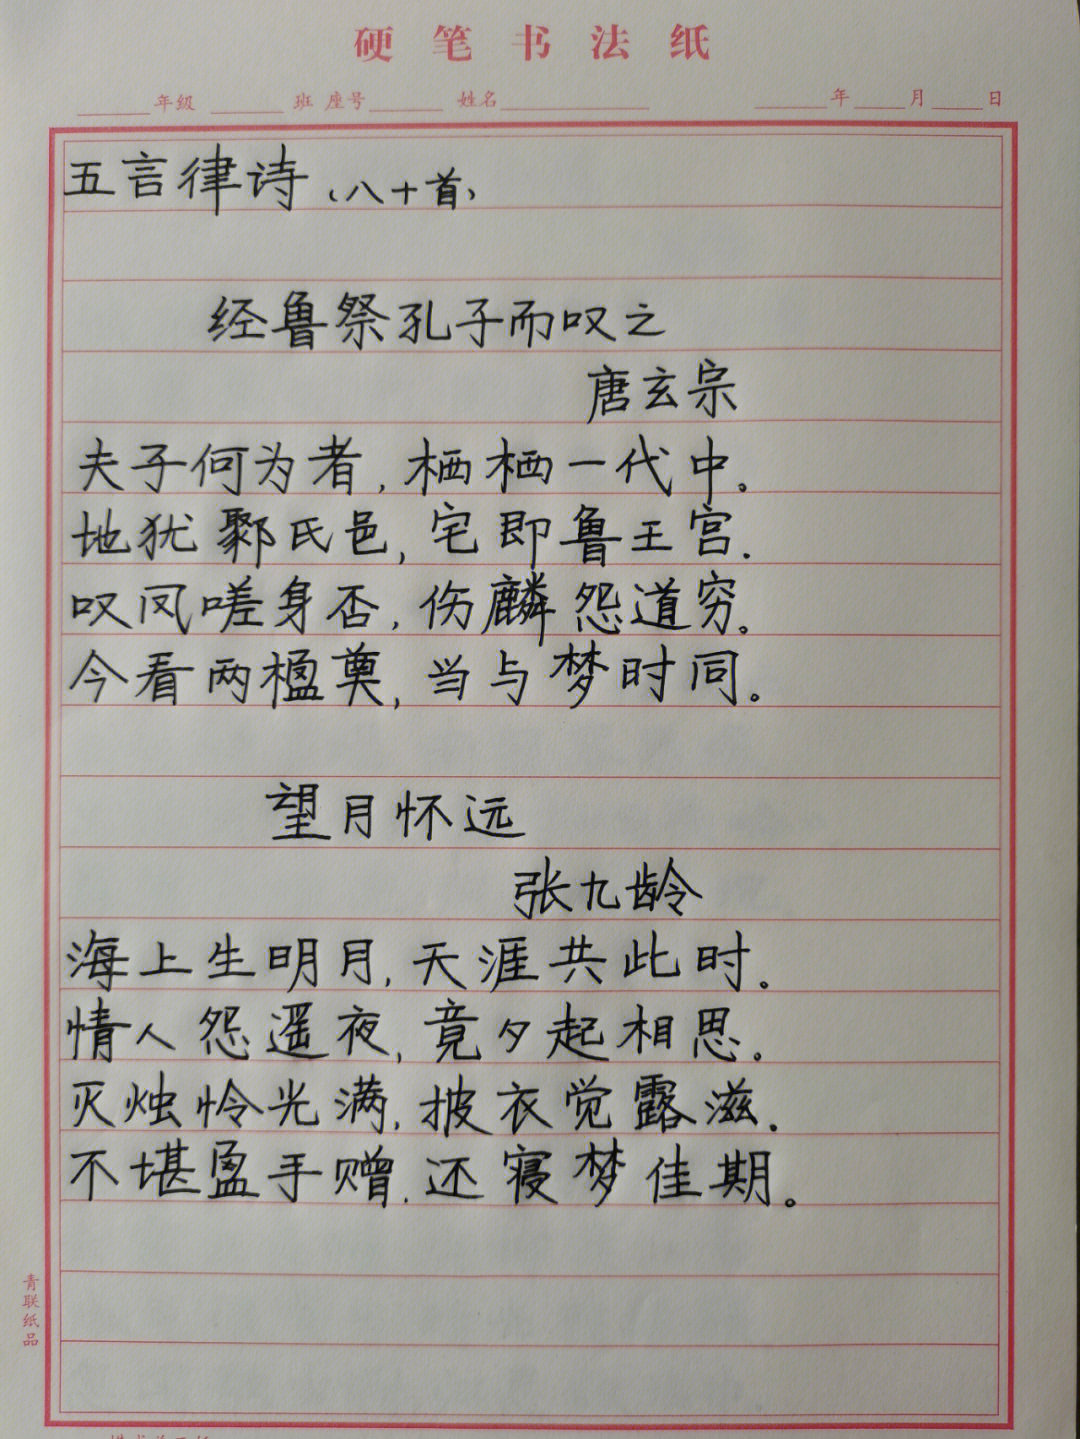 硬笔书法纸
年级 班 座号 姓名 年 月 日
五言律诗（八十首）
经鲁祭孔子而叹之
唐玄宗
夫子何为者，栖栖一代中。
地犹鄹氏邑，宅即鲁王宫．
叹凤嗟身否，伤麟怨道穷。
今看两楹奠，当与梦时同。
望月怀远
张九龄
海上生明月，天涯共此时。
情人怨遥夜，竟夕起相思。
灭烛怜光满，披衣觉露滋．
不堪盈手赠．还寝梦佳期。
青联纸品